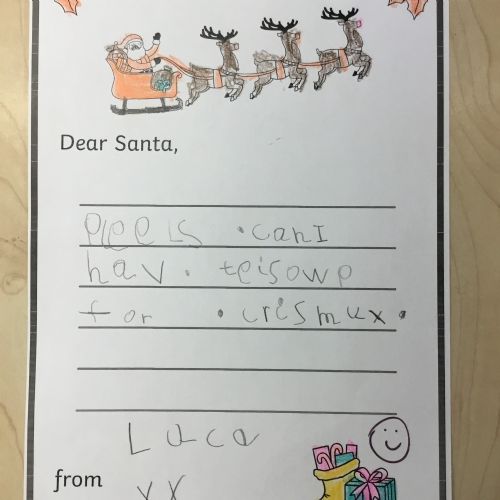 Dear Santa,
pleels . canI
hav . teisowe
for . crismux .
Luca
from
xx